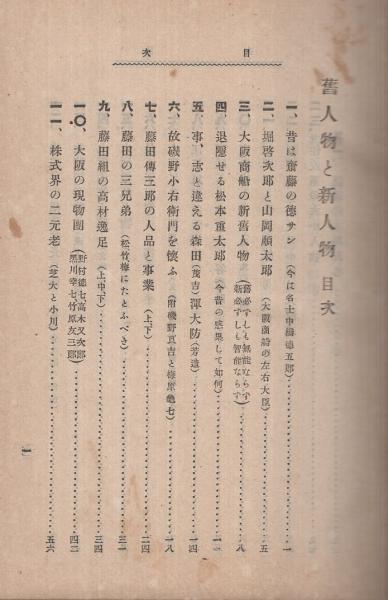 目次
舊人物と新人物 目次
一、昔は齋藤の德サン(今は名士中橋德五郎)……一
二、堀啓次郎と山岡順太郎(大阪商船の左右大臣)……五
三、大阪商船の新舊人物(舊必ずしも無能ならず新必ずしも智能ならず)……八
四、退隱せる松本重太郎(今昔の感果して如何)……一一
五、事、志と違える森田(茂吉)渾大防(芳造)……一四
六、故磯野小右衛門を懷ふ(附磯野良吉と梅原龜七)……一八
七、藤田傳三郎の人品と事業(上、下)……二四
八、藤田の三兄弟(松竹梅にたとふべき)……三一
九、藤田組の高材逸足(上、中、下)……三四
一〇、大阪の現物團(野村德七、高木又次郎黑川幸七、竹原友三郎)……四二
一一、株式界の二元老(芝大と小川)……五六
一